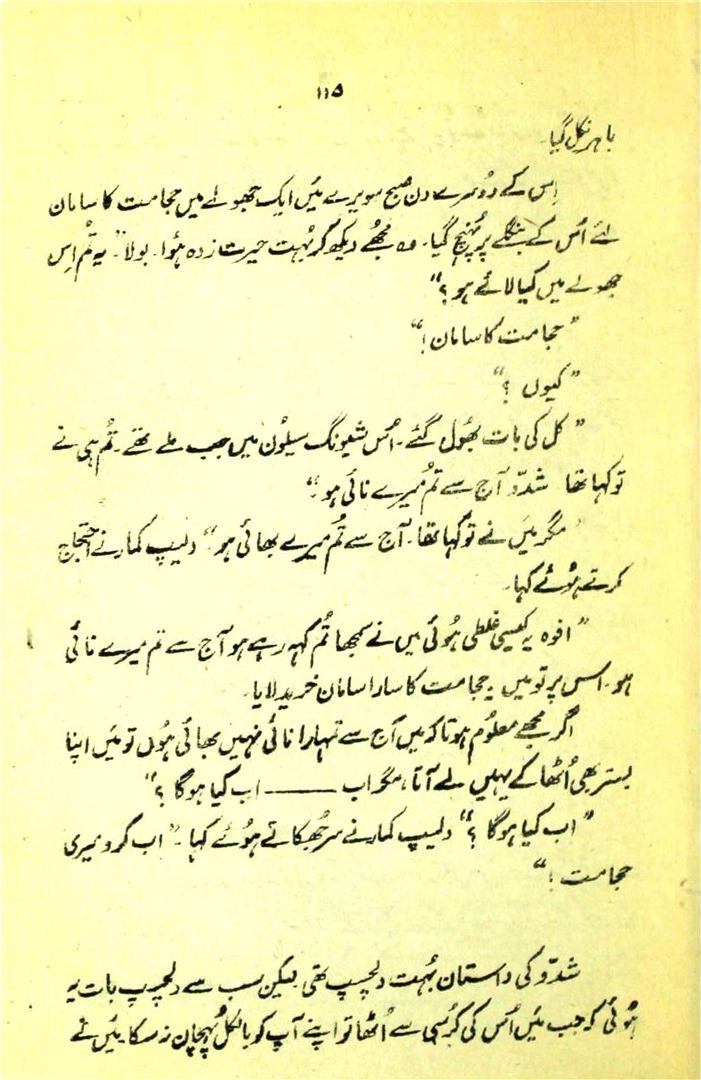 ۱۱۵
باہر نکل گیا۔
اِس کے دُوسرے دن صبح سویرے میں ایک جھولے میں حجامت کا سامان
لئے اُس کے بنگلے پر پُہنچ گیا۔ وہ مُجھے دیکھ کر بُہت حیرت زدہ ہُوا۔ بولا۔ "یہ تُم اِس
جھولے میں کیا لائے ہو؟"
"حجامت کا سامان!"
"کیوں ؟"
"کل کی بات بھُول گئے۔ اُس شیونگ سیلُون میں جب ملے تھے۔ تُم ہی نے
تو کہا تھا شدّو آج سے تُم میرے نائی ہو۔"
"مگر میں نے تو کہا تھا۔ آج سے تُم میرے بھائی ہو" دلیپ کمار نے احتجاج
کرتے ہُوئے کہا۔
"افوہ یہ کیسی غلطی ہُوئی میں نے سمجھا تُم کہہ رہے ہو آج سے تم میرے نائی
ہو۔ اس پر تو میں یہ حجامت کا سارا سامان خرید لایا۔
اگر مجھے معلُوم ہوتا کہ میں آج سے تمہارا نائی نہیں بھائی ہُوں تو میں اپنا
بستر بھی اُٹھا کے یہیں لے آتا، مگر اب ——— اب کیا ہو گا ؟"
"اب کیا ہو گا ؟" دلیپ کمار نے سر جُھکاتے ہُوئے کہا۔ "اب کرو میری
حجامت !"
شدّو کی داستان بُہت دلچسپ تھی لیکن سب سے دلچسپ بات یہ
ہُوئی کہ جب میں اُس کی کُرسی سے اُٹھا تو اپنے آپ کو بالکل پہچان نہ سکا۔ میں نے